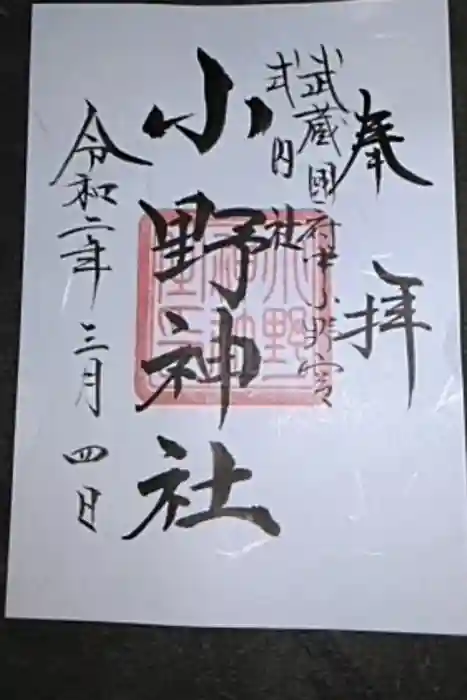 奉拝
武蔵國府中小野宮
式内社
小野神社
令和二年三月四日